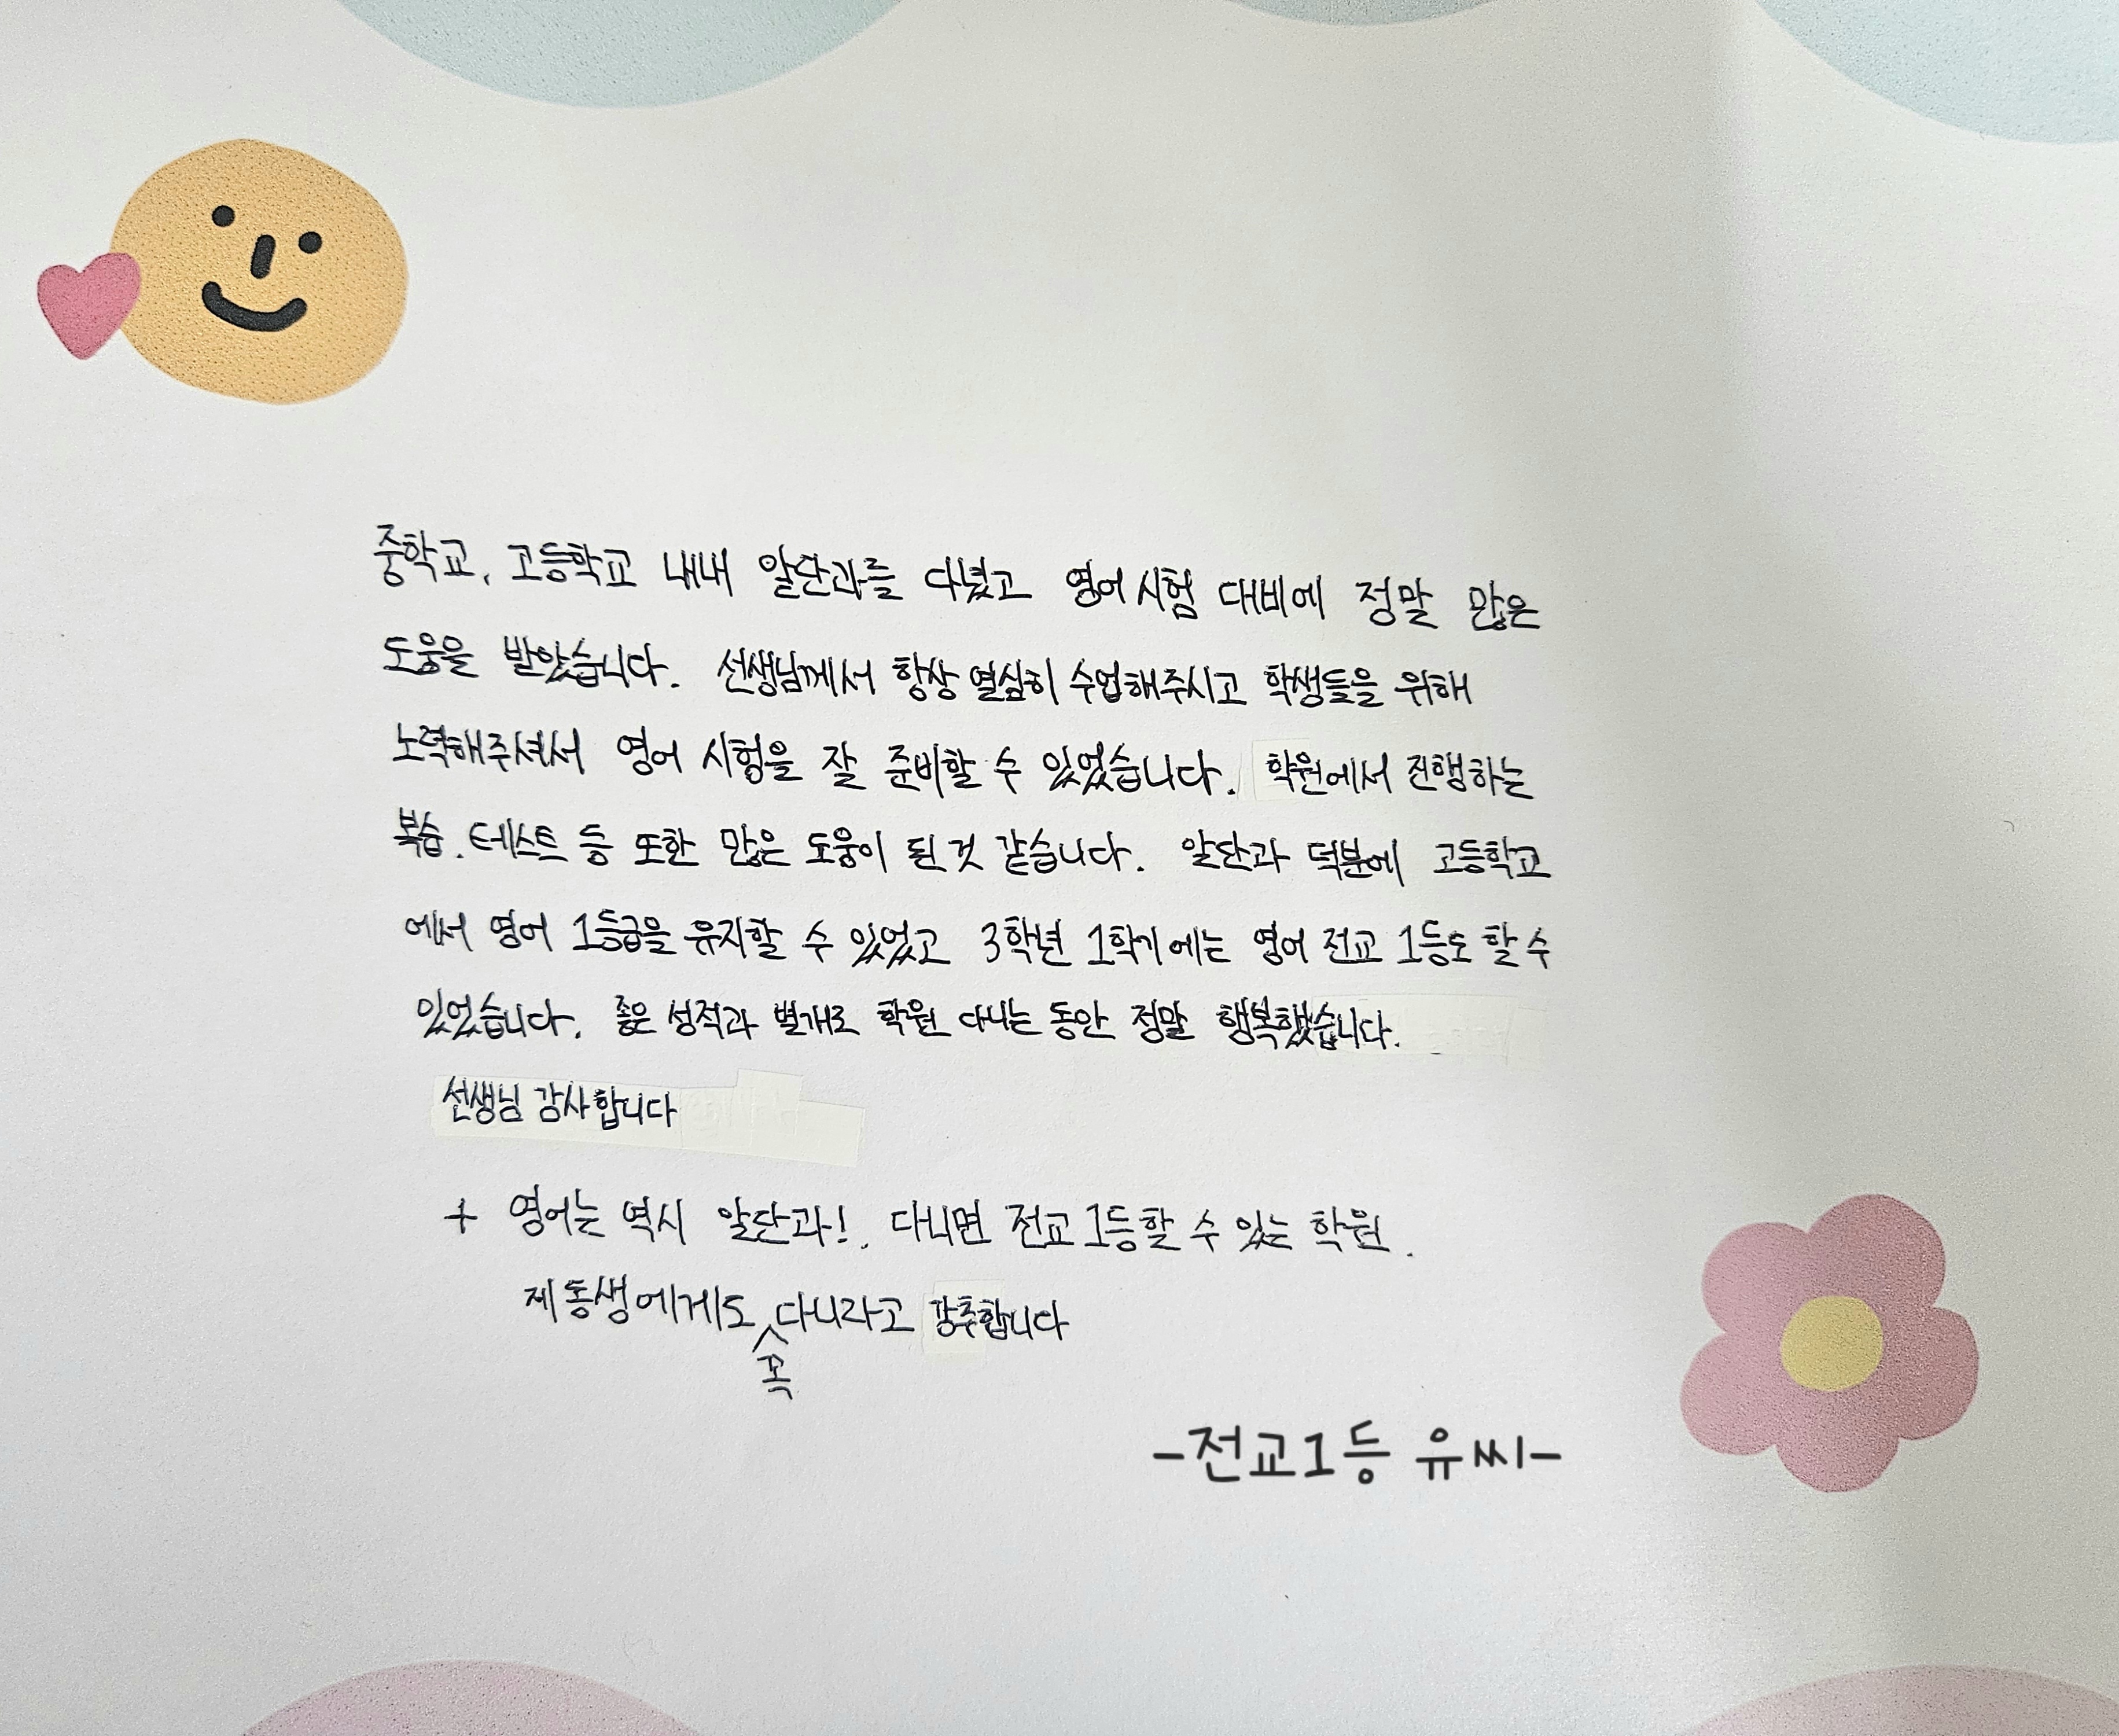 중학교, 고등학교 내내 알단과를 다녔고 영어시험 대비에 정말 많은
도움을 받았습니다. 선생님께서 항상 열심히 수업해주시고 학생들을 위해
노력해주셔서 영어 시험을 잘 준비할 수 있었습니다. 학원에서 진행하는
복습, 테스트 등 또한 많은 도움이 된 것 같습니다. 알단과 덕분에 고등학교
에서 영어 1등급을 유지할 수 있었고 3학년 1학기에는 영어 전교 1등도 할 수
있었습니다. 좋은 성적과 별개로 학원 다니는 동안 정말 행복했습니다.
선생님 감사합니다
+ 영어는 역시 알단과!. 다니면 전교 1등할 수 있는 학원.
제 동생에게도 꼭 다니라고 강추합니다
-전교1등 유씨-